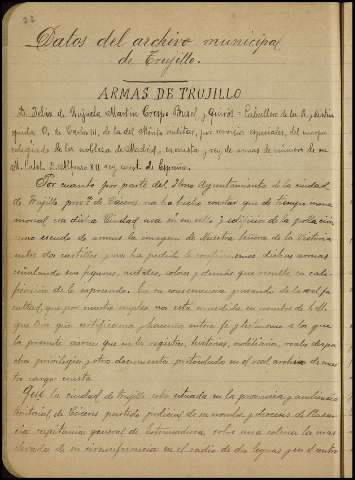 22
Datos del archivo municipal
de Trujillo.
ARMAS DE TRUJILLO
D. Martin Crespo y Quirós = Caballero de la R. y distin
guida O. de Carlos III, de la del Mérito militar, por servicios especiales, del cuerpo
colegiado de la nobleza de Madrid, cronista y rey de armas de número de su
M. Catol. D. Alfonso XII rey const. de España.
Por cuanto por parte del Ilmo Ayuntamiento de la ciudad
de Trujillo prov.ª de Cáceres se ha hecho constar que de tiempo inme
morial usa dicha Ciudad en su sello y edificios de la población
como escudo de armas la imagen de Nuestra Señora de la Victoria
entre dos castillos, y nos ha pedido le confirmemos dichas armas
señalando sus figuras, metales, colores, y demás que resulte en cali-
ficación de lo expresado. En su consecuencia y usando de la real fa
cultad, que por nuestro empleo nos está concedida en nombre de S. M.
que D.s g.e certificamos y hacemos entera fé y testimonio a los que
la presente vieren que en los registros, historias, nobiliarios, reales despa
chos privilegios y otros documentos protocolados en el real archivo de nues
tro cargo consta
Que la ciudad de Trujillo está situada en la provincia y audiencia
territorial de Cáceres partido judicial de su nombre y diócesis de Plasen
cia capitanía general de Extremadura, sobre una colina la mas
elevada de su circunferencia en el radio de dos leguas y en el centro